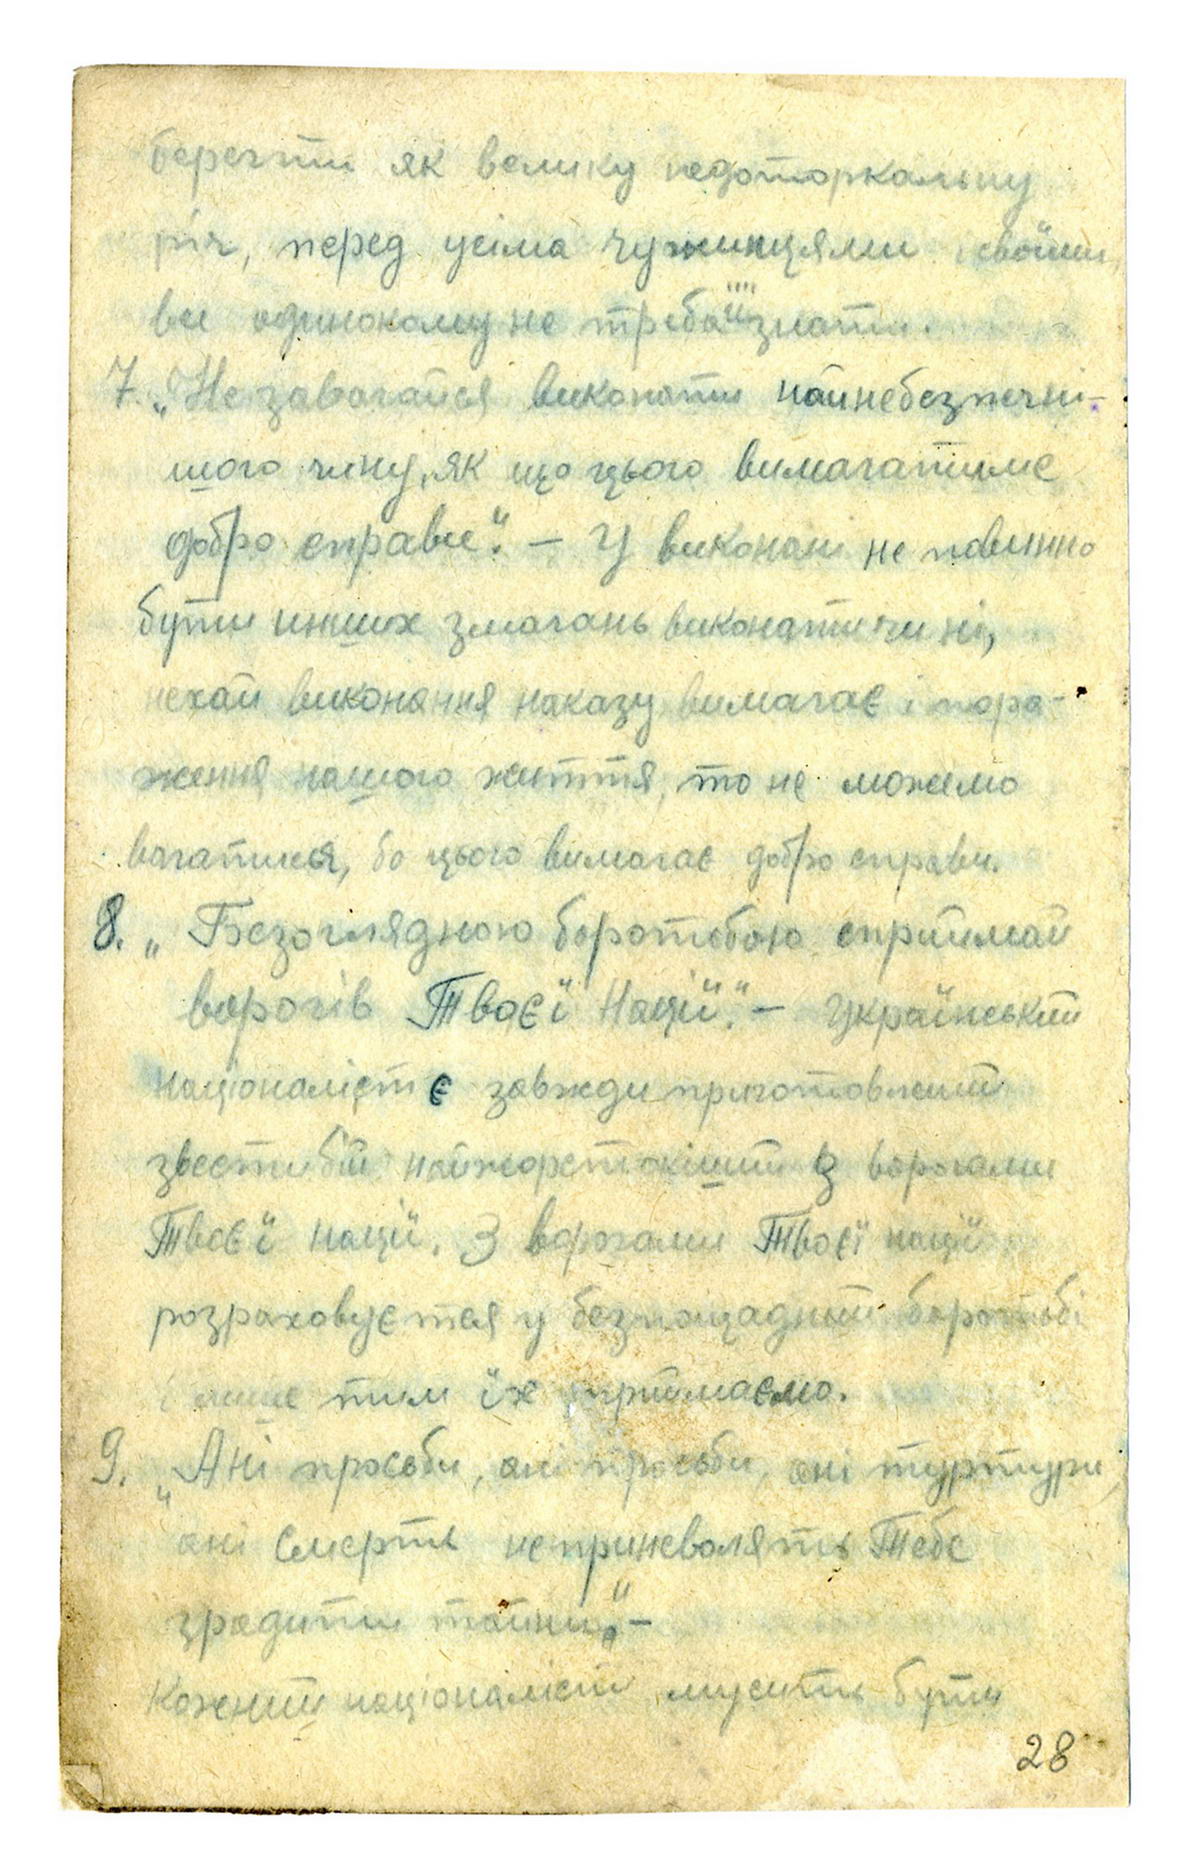 беречти як велику недоторкальну
річ, перед усіма чужинцями і своїми,
ви одинокому не треба її знати.
7. „Не завагайся виконати найнебезпечні-
шого чину, як що цього вимагатиме
добро справи". — У виконані не повинно
бути инших змагань виконати чи ні,
нехай виконання наказу вимагає і пора-
ження нашого життя, то не можемо
вагатися, бо цього вимагає добро справи.
8. „Безоглядною боротьбою сприймай
ворогів Твоєї Нації." — Український
націоналіст є завжди приготовлений
звести бій найжорстокіший з ворогами
Твоєї нації. З ворогами Твоєї нації
розраховується у безпощадній боротьбі
і лише тим їх приймаємо.
9. „Ані просьби, ані просьби, ані туртури,
ані смерть неприневолять Тебе
зрадити тайни." —
Кожний націоналіст мусить бути
28